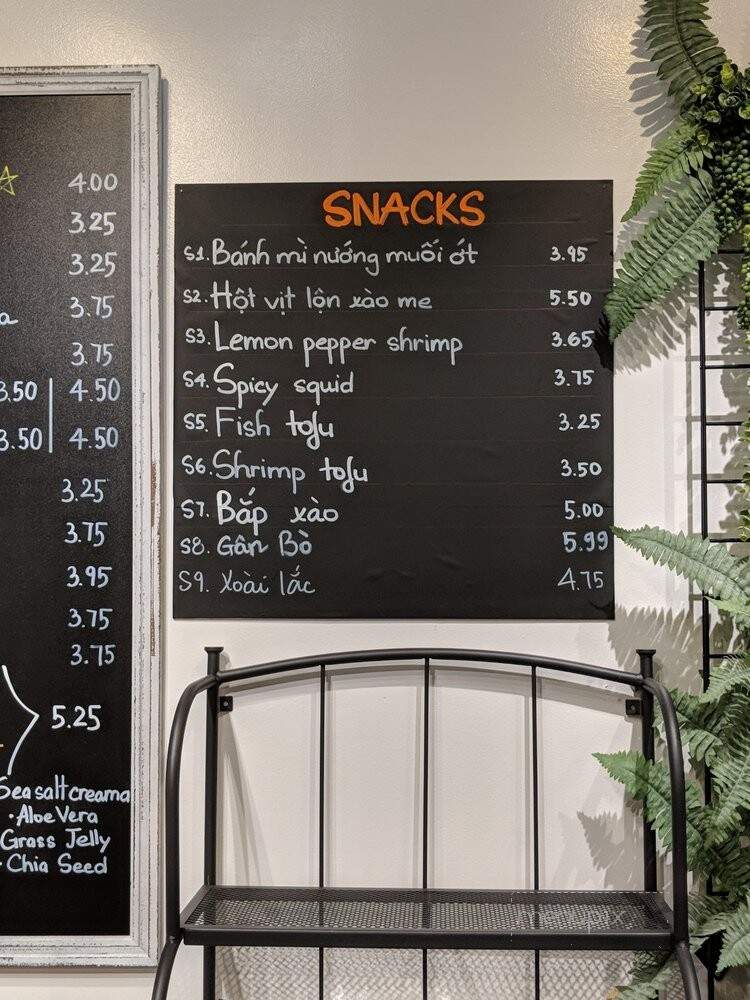 4.00
3.25
3.25
3.75
3.75
3.50 | 4.50
3.50 | 4.50
3.25
3.75
3.95
3.75
3.75
5.25
Sea salt creama
· Aloe Vera
Grass Jelly
· Chia Seed
SNACKS
S1. Bánh mì nướng muối ớt 3.95
S2. Hột vịt lộn xào me 5.50
S3. Lemon pepper shrimp 3.65
S4. Spicy squid 3.75
S5. Fish tofu 3.25
S6. Shrimp tofu 3.50
S7. Bắp xào 5.00
S8. Gân Bò 5.99
S9. Xoài lắc 4.75